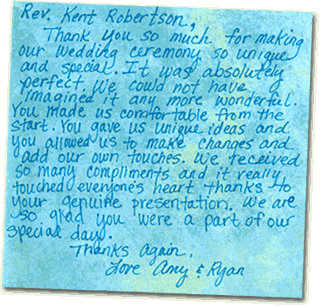 Rev. Kent Robertson,
Thank you so much for making
our wedding ceremony so unique
and special. It was absolutely
perfect. We could not have
imagined it any more wonderful.
You made us comfortable from the
start. You gave us unique ideas and
you allowed us to make changes and
add our own touches. We received
so many compliments and it really
touched everyone's heart thanks to
your genuine presentation. We are
so glad you were a part of our
special day.
Thanks Again,
Love Amy & Ryan